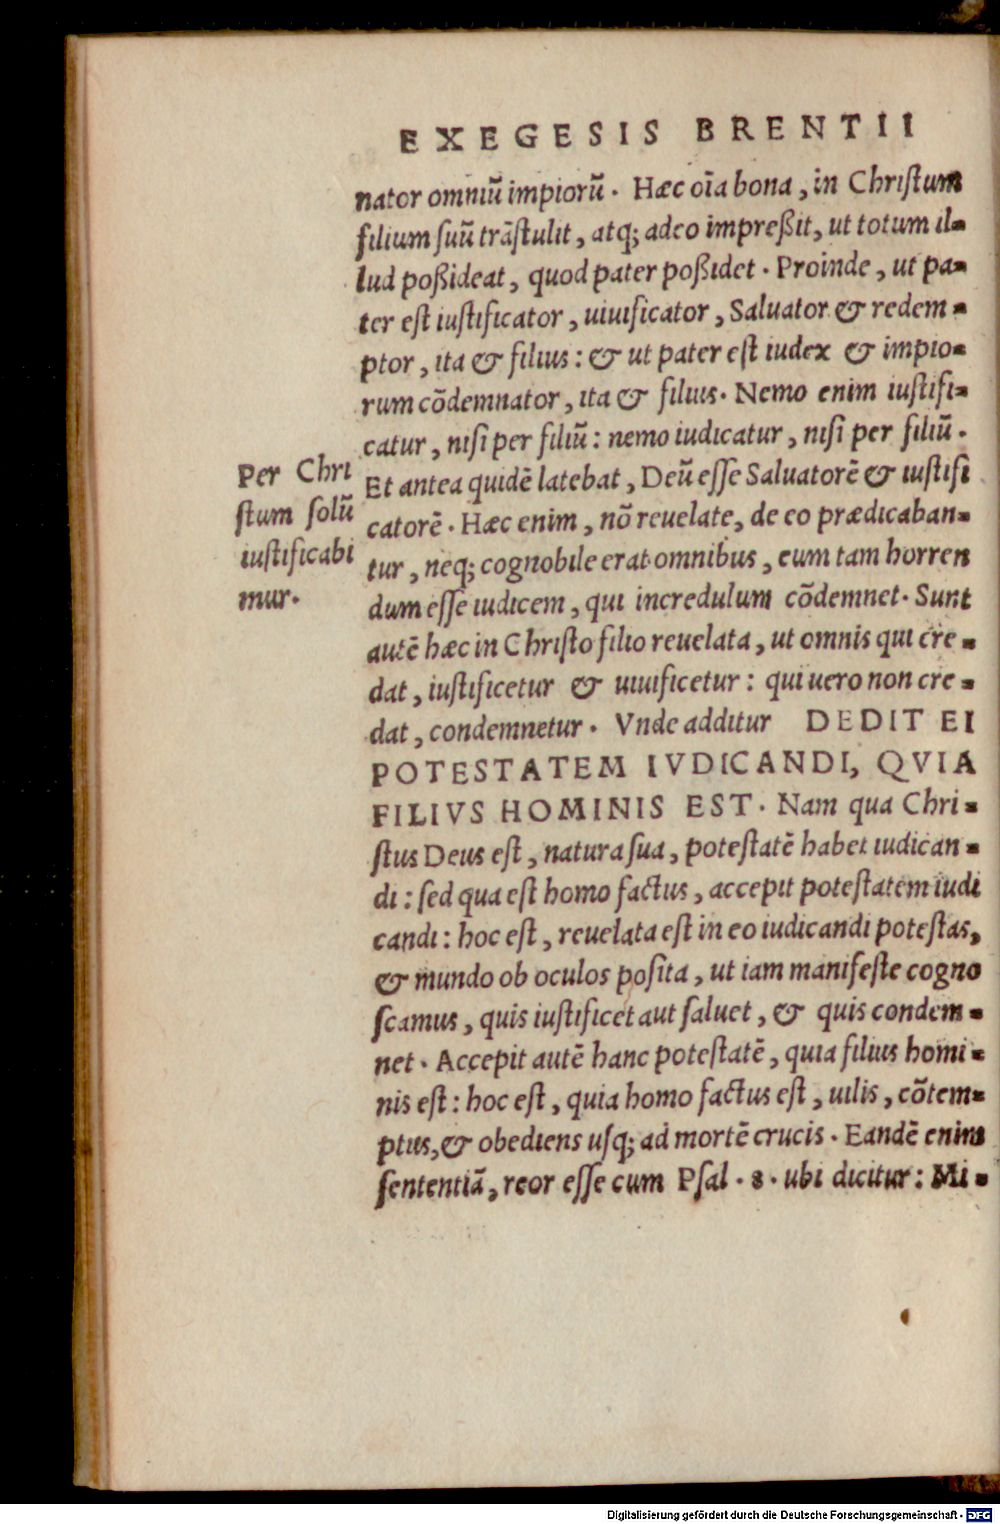 EXEGESIS BRENTII
nator omniū impiorū. Hæc oīa bona, in Christum
filium suū trāstulit, atq; adeo impreßit, ut totum il-
lud poßideat, quod pater poßidet. Proinde, ut pa-
ter est iustificator, uiuificator, Saluator & redem-
ptor, ita & filius: & ut pater est iudex & impio-
rum cōdemnator, ita & filius. Nemo enim iustifi-
catur, nisi per filiū: nemo iudicatur, nisi per filiū.
Et antea quidē latebat, Deū esse Saluatorē & iustifi
catorē. Hæc enim, nō reuelate, de eo prædicaban-
tur, neq; cognobile erat omnibus, eum tam horren
dum esse iudicem, qui incredulum cōdemnet. Sunt
autē hæc in Christo filio reuelata, ut omnis qui cre-
dat, iustificetur & uiuificetur: qui uero non cre-
dat, condemnetur. Vnde additur DEDIT EI
POTESTATEM IVDICANDI, QVIA
FILIVS HOMINIS EST. Nam qua Chri-
stus Deus est, natura sua, potestatē habet iudican-
di: sed qua est homo factus, accepit potestatem iudi
candi: hoc est, reuelata est in eo iudicandi potestas,
& mundo ob oculos posita, ut iam manifeste cogno
scamus, quis iustificet aut saluet, & quis condem-
net. Accepit autē hanc potestatē, quia filius homi-
nis est: hoc est, quia homo factus est, uilis, cōtem-
ptus, & obediens usq; ad mortē crucis. Eandē enim
sententiā, reor esse cum Psal. 8. ubi dicitur: Mi-
Per Chri
stum solū
iustificabi
mur.
Digitalisierung gefördert durch die Deutsche Forschungsgemeinschaft - DFG